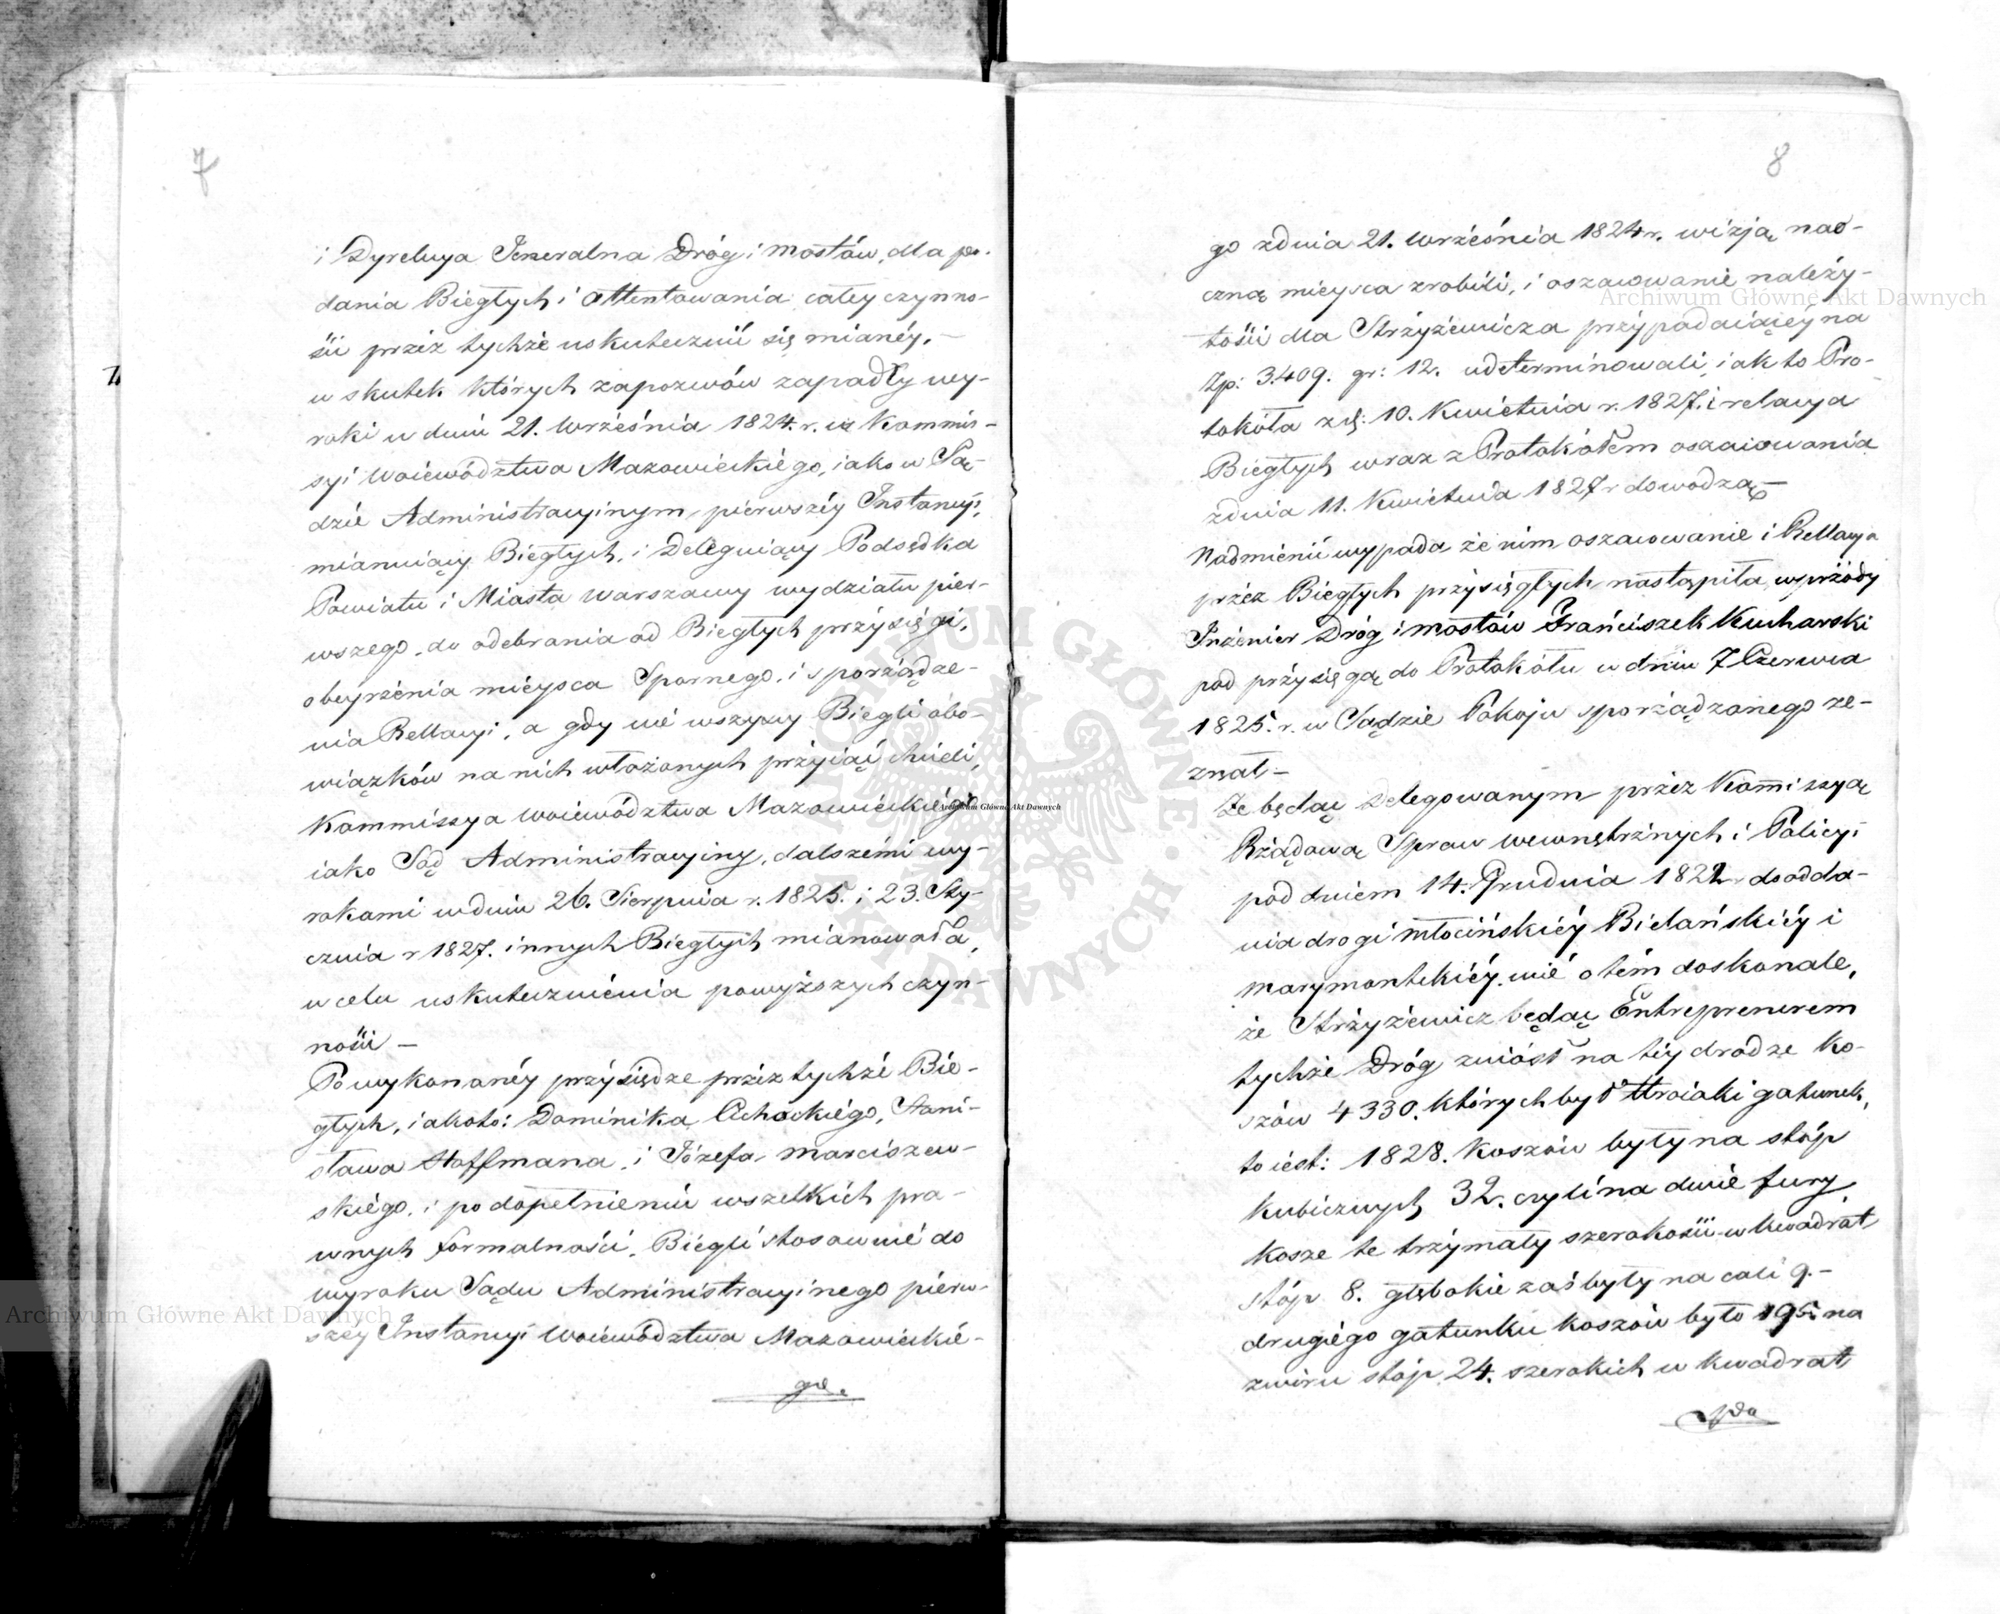 7
i Dyrekcya Jeneralna Dróg i Mostów, dla po-
dania Biegłych i attentowania całey czynno-
ści przez tychże uskutecznić się mianéy. —
w skutek których zapozwów zapadły wy-
roki w dniu 21. Września 1824. r. w Kommis-
syi Woiewództwa Mazowieckiego, iako w Są-
dzie Administracyinym pierwszéy Instancyi,
mianuiący Biegłych, i Deleguiący Podsędka
Powiatu i Miasta Warszawy wydziału pier-
wszego, do odebrania od Biegłych przysięgi,
obeyrzenia mieysca Spornego, i sporządze-
nia Rellacyi, a gdy nie wszyscy Biegli obo-
wiązków na nich włożonych przyiąć chcieli,
Kommissya Woiewództwa Mazowieckiégo
iako Sąd Administracyiny, dalszemi wy-
rokami w dniu 26. Sierpnia r. 1825. i 23. Sty-
cznia r 1827. innych Biegłych mianowała,
w celu uskutecznienia powyższych czyn-
ności —
Po wykonanéy przysiędze przez tychże Bie-
głych, iakoto: Dominika Cichockiégo, Stani-
sława Hoffmana, i Józefa Marciszew-
skiégo, i po dopełnieniu wszelkich pra-
wnych formalności, Biegli stosownie do
wyroku Sądu Administracyinego pierw-
széy Instancyi Woiewództwa Mazowieckie-
go
8
go z dnia 21. Września 1824 r. wizją nao-
czną mieysca zrobili, i oszacowanie należy-
tości dla Strzyżewicza przypadaiącéy na
Zp: 3.409. gr: 12. udeterminowali, iak to Pro-
tokóła z d: 10. Kwietnia r. 1827. i relacya
Biegłych wraz z Protokółem oszacowania
z dnia 11. Kwietnia 1827 r dowodzą —
Nadmienić wypada że nim oszacowanie i Rellacya
przez Biegłych przysięgłych nastąpiła, wprzódy
Inżenier Dróg i Mostów Franciszek Kucharski
pod przysięgą do Protokółu w dniu 7 Czerwca
1825. r. w Sądzie Pokoju sporządzonego ze-
znał —
Że będąc Delegowanym przez Kommissyą
Rządową Spraw wewnętrznych i Policyi
pod dniem 14. Grudnia 1822 do odda-
nia drogi Młocińskiéy Bielańskiéy i
Marymontskiéy, wié o tém doskonale,
że Strzyżewicz będąc Entreprenerem
tychże Dróg zwióśł na téy drodze ko-
szów 4330. których był troiaki gatunek,
to iest: 1828. koszów były na stóp
kubicznych 32. czyli na dwie fury,
kosze te trzymały szerokości w kwadrat
stóp 8. głębokie zaś były na cali 9. —
drugiégo gatunku koszów było 195. na
zwiru stóp 24. szerokich w kwadrat
Archiwum Główne Akt Dawnych
Archiwum Główne Akt Dawnych
Archiwum Główne Akt Dawnych
ARCHIWUM GŁÓWNE AKT DAWNYCH